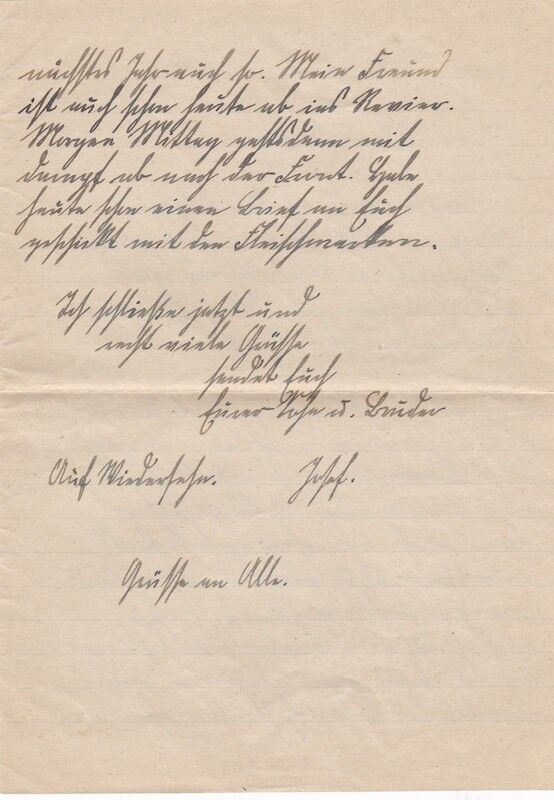 nächstes Jahr auch so. Mein Freund
ist auch schon heute ab ins Revier.
Morgen Mittag gehts dann mit
dampf ab nach der Front. Habe
heute schon einen Brief an Euch
geschickt mit den Fleischmarken.
Ich schließe jetzt und
recht viele Grüsse
sendet Euch
Euer Sohn u. Bruder
Auf Wiedersehn. Josef.
Grüsse an Alle.